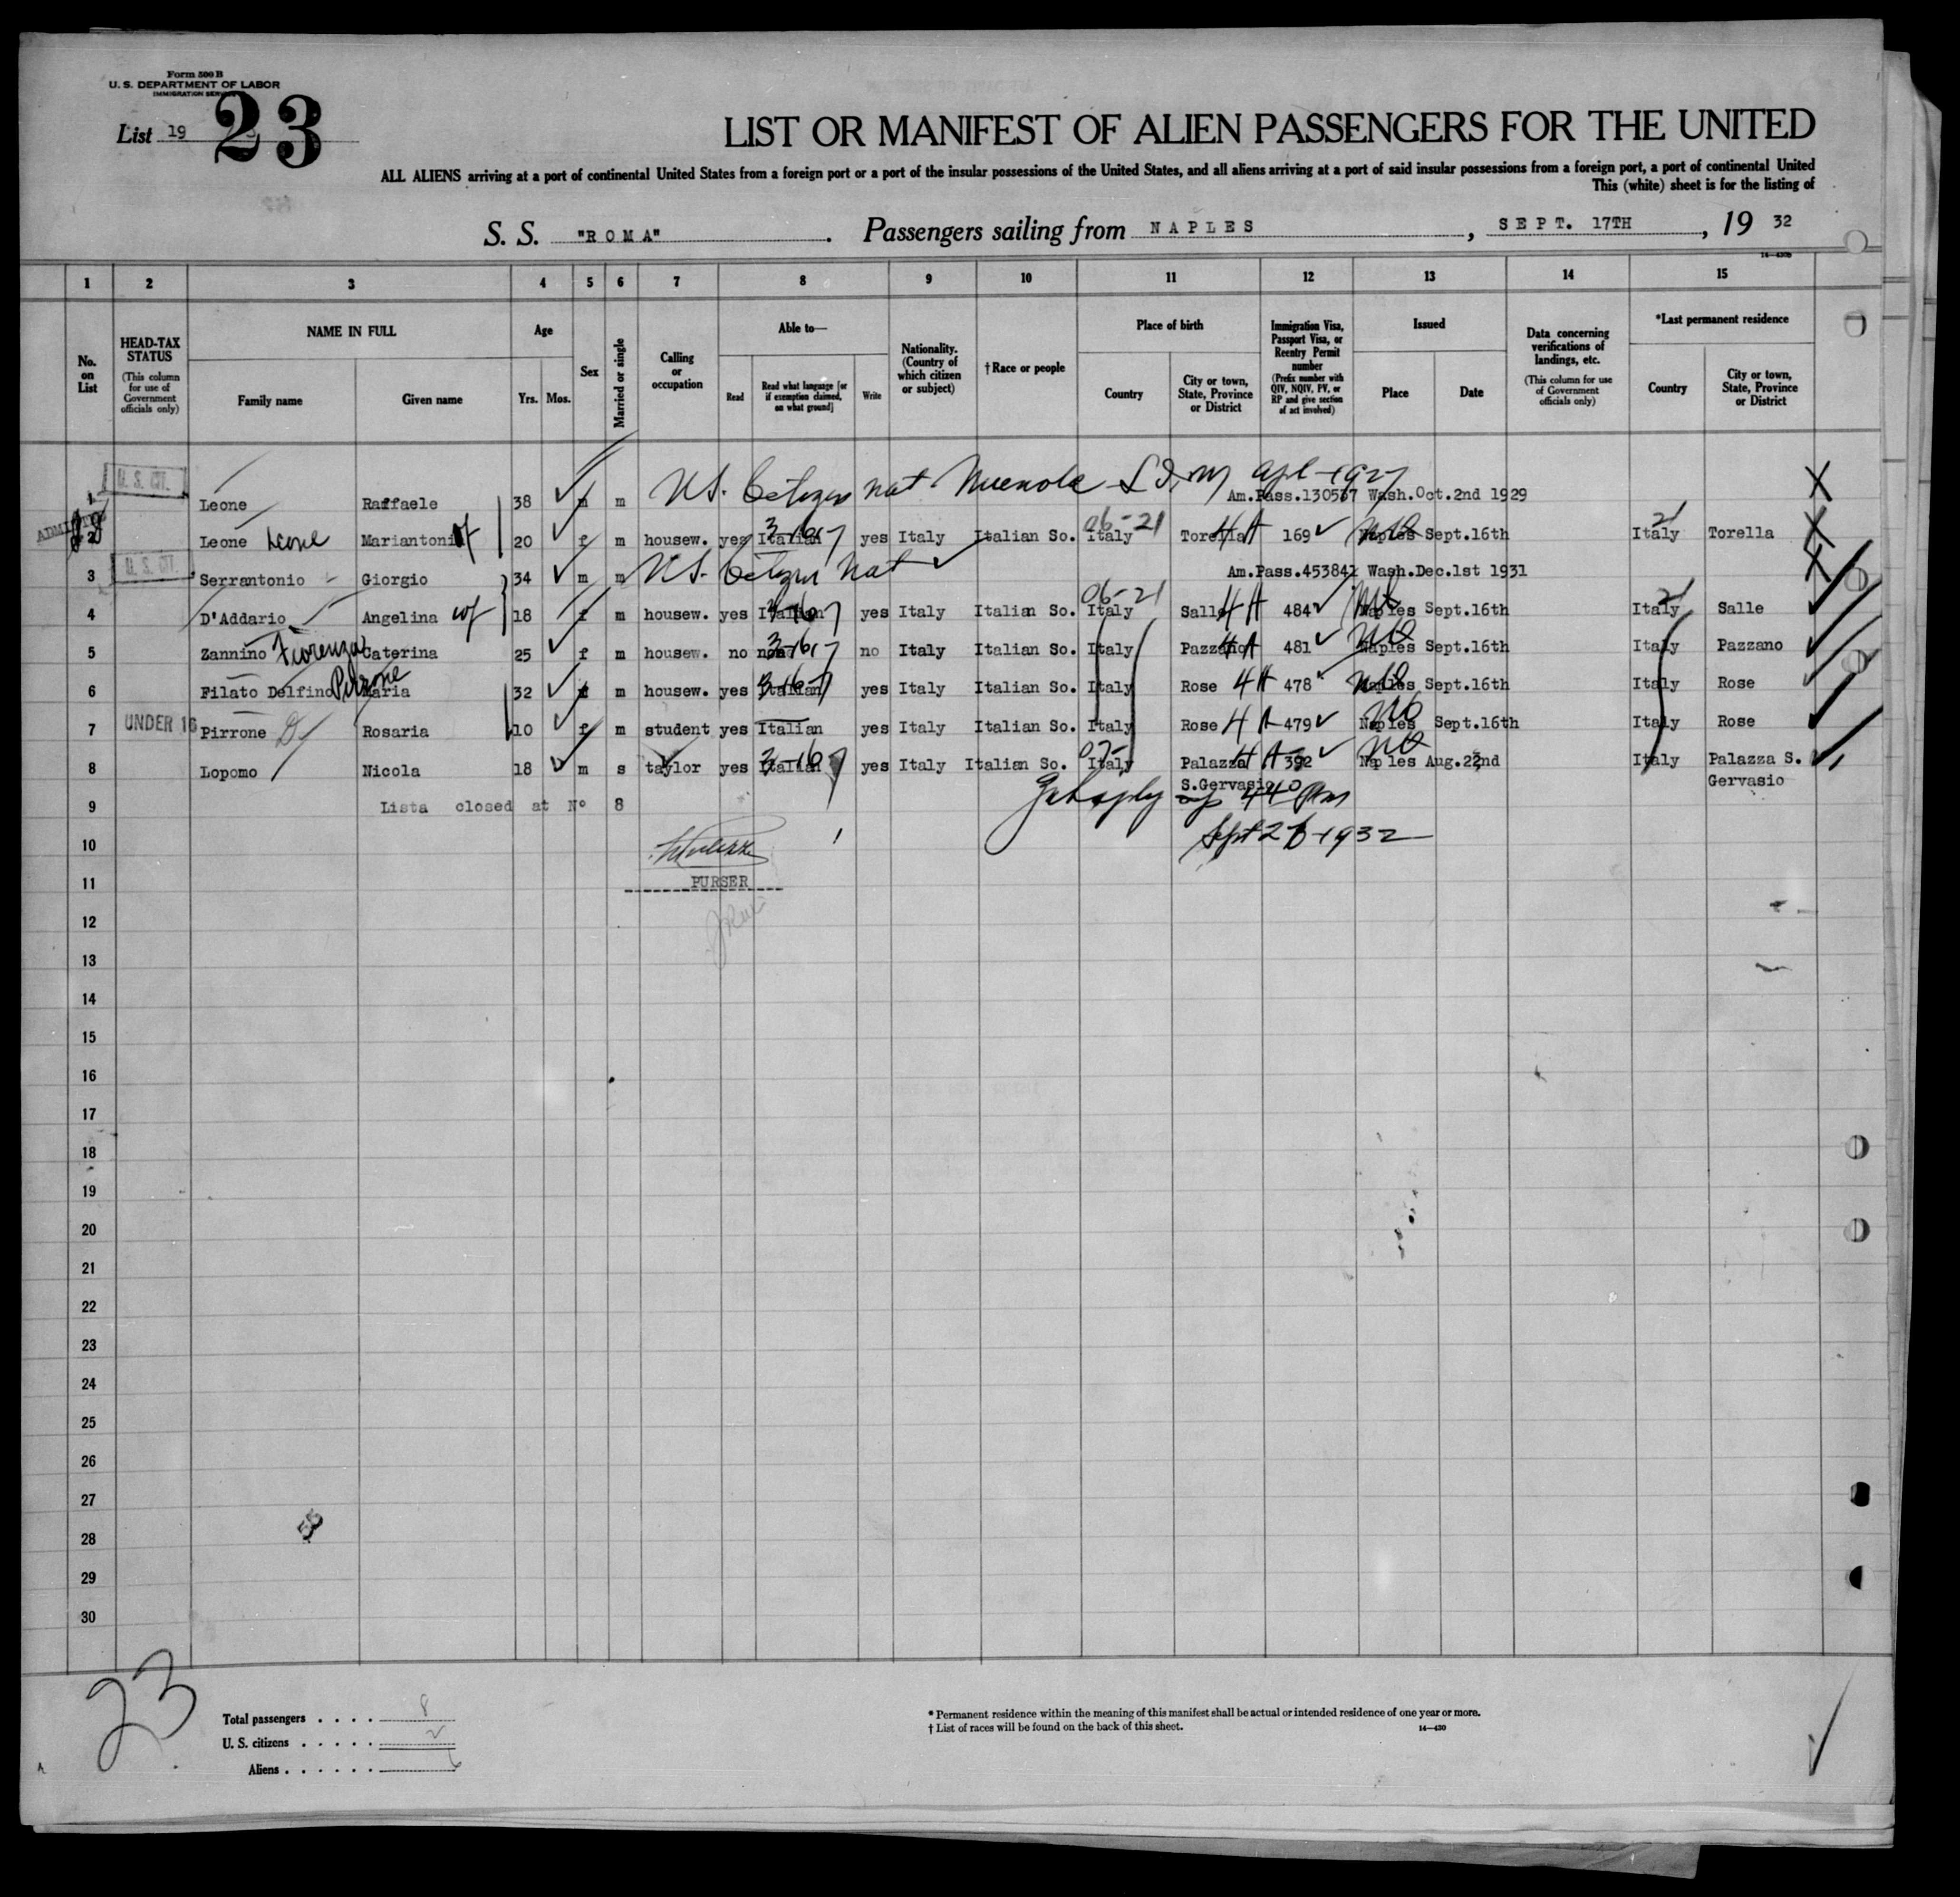 Form 500 B
U. S. DEPARTMENT OF LABOR
IMMIGRATION SERVICE
List 19
23
LIST OR MANIFEST OF ALIEN PASSENGERS FOR THE UNITED
ALL ALIENS arriving at a port of continental United States from a foreign port or a port of the insular possessions of the United States, and all aliens arriving at a port of said insular possessions from a foreign port, a port of continental United
This (white) sheet is for the listing of
S. S. "ROMA". Passengers sailing from NAPLES, SEPT. 17TH, 19 32
14—430b
1 2 3 4 5 6 7 8 9 10 11 12 13 14 15
No. on List
HEAD-TAX STATUS (This column for use of Government officials only)
NAME IN FULL Family name Given name
Age Yrs. Mos.
Sex
Married or single
Calling or occupation
Able to— Read Read what language [or if exemption claimed, on what ground] Write
Nationality. (Country of which citizen or subject)
†Race or people
Place of birth Country City or town, State, Province or District
Immigration Visa, Passport Visa, or Reentry Permit number (Prefix number with QIV, NQIV, PV, or RP and give section of act involved)
Issued Place Date
Data concerning verifications of landings, etc. (This column for use of Government officials only)
*Last permanent residence Country City or town, State, Province or District
1 U. S. CIT. Leone Raffaele 38 m m U.S. Citizen nat. Apl-1927 Am.Pass.130567 Wash.Oct.2nd 1929 X
ADMITTED 2 Leone Leone Mariantonia wf 20 f m housew. yes Italian 3-16-17 yes Italy Italian So. Italy 06-21 Torella 4A 169 Naples Sept.16th Italy 21 Torella X
3 U. S. CIT. Serrantonio Giorgio 34 m m U.S. Citizen Nat Am.Pass.453841 Wash.Dec.1st 1931 X
4 D'Addario Angelina wf 18 f m housew. yes Italian yes Italy Italian So. Italy 06-21 Salle 4A 484 Naples Sept.16th Italy 21 Salle
5 Zannino Fiorenza Caterina 25 f m housew. no none no Italy Italian So. Italy Pazzano 4A 481 Naples Sept.16th Italy Pazzano
6 Filato Delfino Pirrone Maria 32 f m housew. yes Italian yes Italy Italian So. Italy Rose 4A 478 Naples Sept.16th Italy Rose
7 UNDER 16 Pirrone D Rosaria 10 f m student yes Italian yes Italy Italian So. Italy Rose 4A 479 Naples Sept.16th Italy Rose
8 Lopomo Nicola 18 m s taylor yes Italian yes Italy Italian So. Italy 07- Palazza 4A 392 Naples Aug.22nd Italy Palazza S.
S.Gervasio Gervasio
9 Lista closed at N° 8 440 Pm
10 Sept 26-1932
11 PURSER
12
13
14
15
16
17
18
19
20
21
22
23
24
25
26
27
28
29
30
23
Total passengers . . . . 8
U. S. citizens . . . . . 2
Aliens . . . . . . 6
* Permanent residence within the meaning of this manifest shall be actual or intended residence of one year or more.
† List of races will be found on the back of this sheet.
14—430